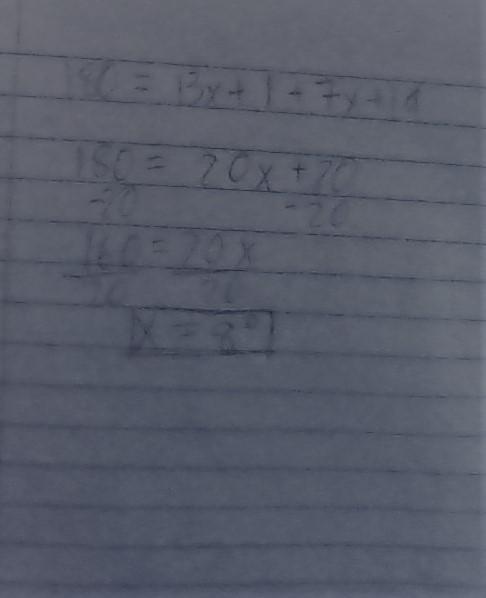 180 = 13x + 1 + 7x + 19
180 = 20x + 20
-20 -20
160 = 20x
20 20
x = 8°